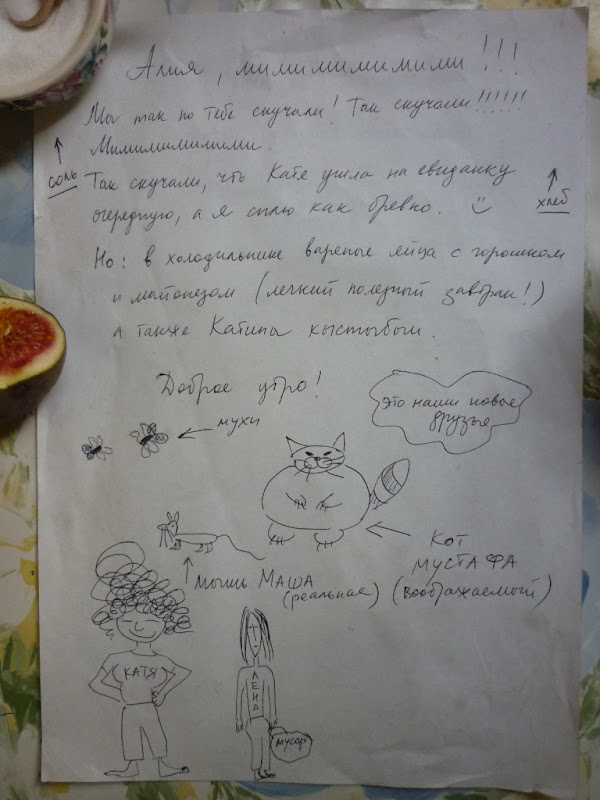 Алия, мимимимимими!!!
Мы так по тебе скучали! Так скучали!!!!!!
Мимимимимими.
соль
Так скучали, что Катя ушла на свиданку
очередную, а я сплю как бревно.
хлеб
Но: в холодильнике вареные яйца с горошком
и майонезом (легкий полезный завтрак!)
а также Катины кыстыбыи.
Доброе утро!
это наши новые
друзья
мухи
Кот
Мустафа
(воображаемый)
мышь Маша
(реальная)
КАТЯ
ЛЕНА
мусор